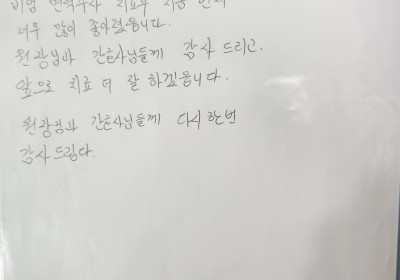 비염 면역주사 치료후 지금 현재
너무 많이 좋아졌습니다.
원장님과 간호사님들께 감사 드리고.
앞으로 치료 더 잘 하겠습니다.
원장님과 간호사님들께 다시한번
감사드립다.